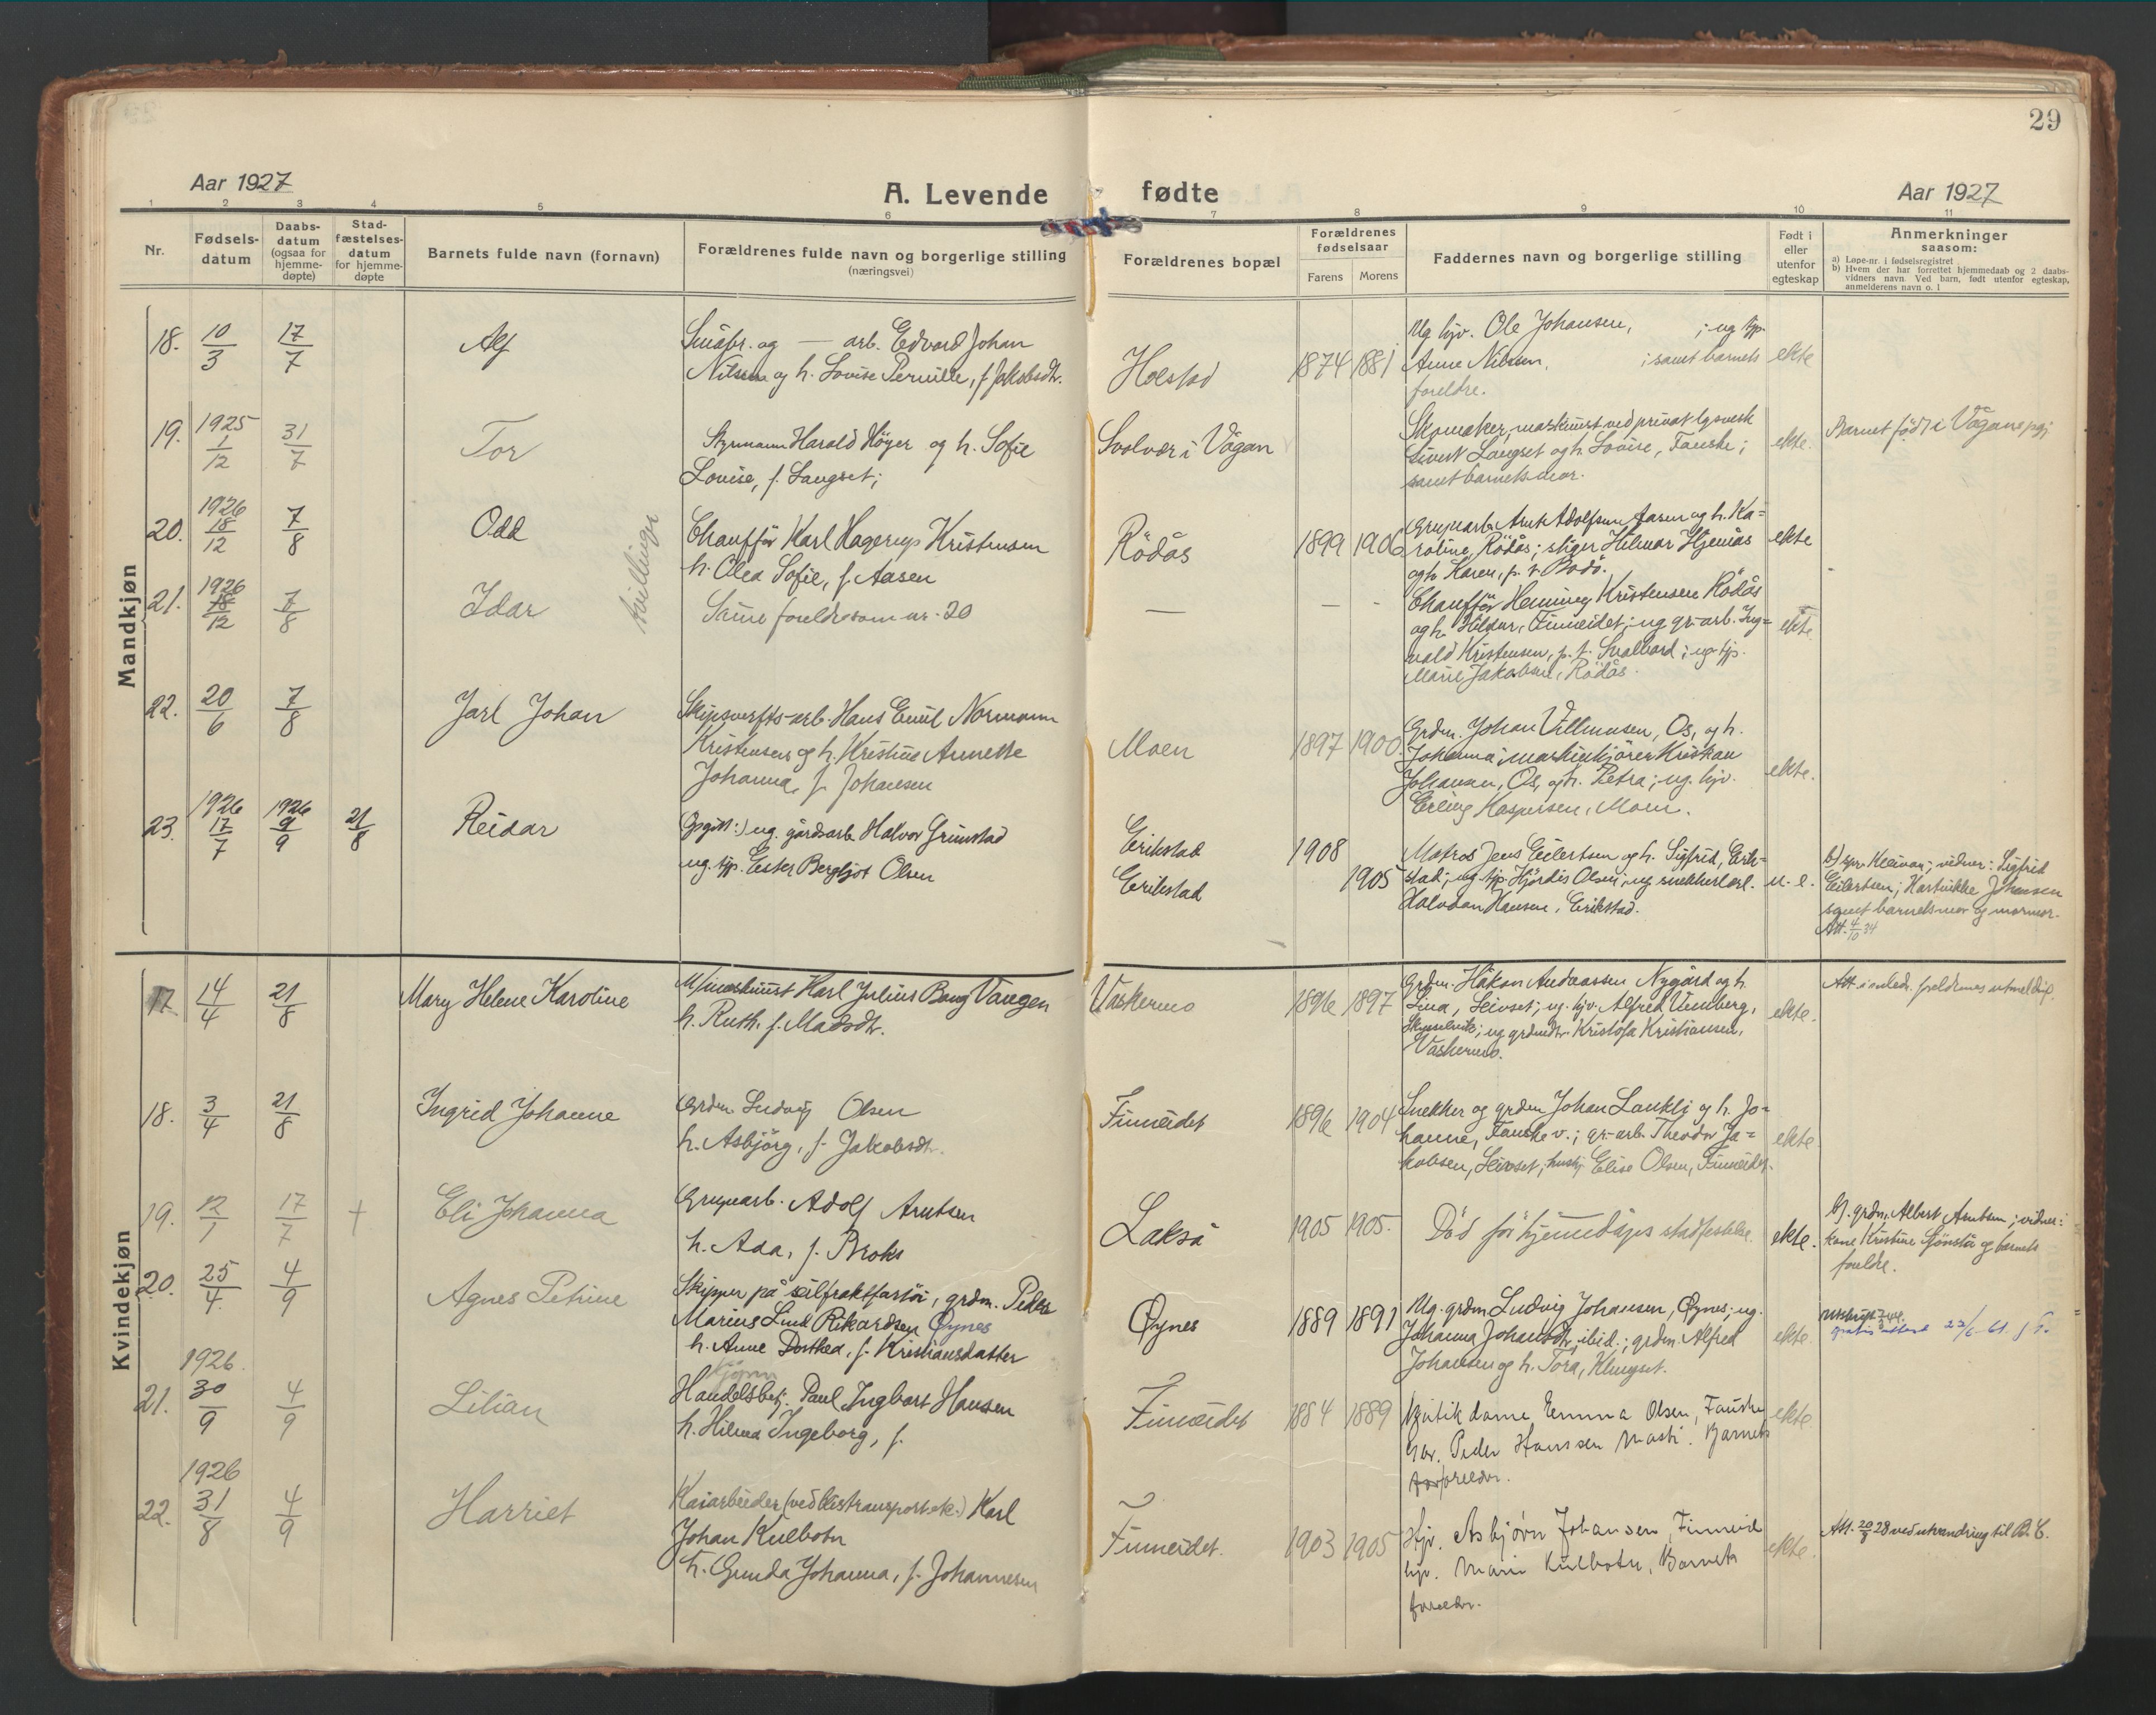 29
Aar 1927
A. Levende fødte
Aar 1927
1 2 3 4 5 6 7 8 9 10 11
Nr.
Fødsels-
datum
Daabs-
datum
(ogsaa for
hjemme-
døpte)
Stad-
fæstelses-
datum
for hjemme-
døpte
Barnets fulde navn (fornavn)
Forældrenes fulde navn og borgerlige stilling
(næringsvei)
Forældrenes bopæl
Forældrenes
fødselsaar
Farens Morens
Faddernes navn og borgerlige stilling
Født i
eller
utenfor
egteskap
Anmerkninger
saasom:
a) Løpe-nr. i fødselsregistret
b) Hvem der har forrettet hjemmedaab og 2 daabs-
vidners navn. Ved barn, født utenfor egteskap,
anmelderens navn o. l
Mandkjøn
18. 10/3 17/7 Alf
Småbr. og — arb. Edvard Johan
Nilssen og h. Lovise Pernille, f. Jakobsdtr.
Holstad 1874 1881
Ug hjv. Ole Johansen, ; ug tjp.
Anne Nilsen, ; samt barnets
foreldre.
ekte
19. 1925 1/12 31/7 Tor
Styrmann Harald Høyer og h. Sofie
Lovise, f. Langset;
Svolvær i Vågan
Skomaker, maskinist ved privat lysverk
Sivert Langset og h. Lovise, Fauske;
samt barnets mor.
ekte.
Barnet født i Vågan pgj.
20. 1926 18/12 7/8 Odd
tvillinger
Chauffør Karl Hagerup Kristensen
h. Olea Sofie, f. Aasen
Rödås 1899 1906
Gruvearb. Arnt Adolfsen Aasen og h. Ka=
roline, Rödås; stiger Hilmar Hjemås
og h. Karen, p. t. Bodö.
ekte
21. 1926 18/12 7/8 Idar
Same foreldre som nr. 20
— — -
Chauffør Henning Kristensen Rödås
og h. Hildur, Finneidet; ug gr.-arb. Ing=
vald Kristensen, p. t. Svalbard; ug tjp.
Marie Jakobsen, Rödås.
ekte.
22. 20/6 7/8 Jarl Johan
Skipsverfts-arb. Hans Emil Normann
Kristensen og h. Kristine Annette
Johanna, f. Johansen
Moen 1897 1900.
Grdm. Johan Villumsen, Os, og h.
Johanna; maskinkjörer Kristian
Johansen, Os, og h. Petra; ug. hjv.
Erling Kaspersen, Moen.
ekte.
23. 1926 17/7 1926 9/9 21/8 Reidar
(Opgitt:) ug. gårdsarb. Halvor Grimstad
ug. tjp. Ester Bergljot Olsen
Erikstad 1908
Erikstad 1905
Matros Jens Eilertsen og h. Sigfrid, Erik-
stad; ug. tjp. Hjördis Olsen; ug snekkerlærl.
Halvdan Hansen, Erikstad.
u. e.
b) spr. Kleivan; vidner: Sigfrid
Eilertsen; Hartvikke Johansen
samt barnets mor og mormor.
Att. 4/10 34
Kvindekjøn
17. 14/4 21/8 Mary Helene Karoline
M/maskinist Karl Julius Bang Vangen
h. Ruth, f. Madsdtr.
Vaskermo 1896 1897
Grdm. Håkon Andreassen Nygård og h.
Lina, Leivset; ug. hjv. Alfred Vinnberg,
ug grdmdtr. Kristofa Kristiansen,
Vaskermo.
ekte.
Att. i anledn. foreldrenes utmeldig.
18. 3/4 21/8 Ingrid Johanne
Grdm. Ludvig Olsen
h. Asbjörg, f. Jakobsdtr.
Finneidet 1896 1904
Snekker og grdm Johan Lauklj og h. Jo=
hanne, Fauske v.; gr.-arb. Theodor Ja=
kobsen, Leivset; hustr. Elise Olsen, Finneidet.
ekte
19. 12/1 17/7 † Eli Johanna
Gruvearb. Adolf Arntsen
h. Ada, f. Broks
Lakså 1905 1905.
Död för hjemmedåpens stadfestelse.
ekte.
b). grdm. Albert Arntsen; vidner:
kone Kristine Sjönstå og barnets
foreldre.
20. 25/4. 4/9 Agnes Petrine
Skipper på seilfraktfartöi, grdm. Peder
Marius Lind Rikardsen Øynes
h. Anne Dorthea, f. Kristiansdatter
Øynes 1889 1891
Ug. grdm Ludvig Johansen, Øynes; ug.
Johanna Johansdtr, ibid.; grdm. Alfred
Johansen og h. Tora, Klungset.
ekte.
gratis attest 22/6-61.
21. 1926. 30/9 4/9 Lilian
Handelsbetj. Paul Ingbart Hansen
h. Hilma Ingeborg, f.
Finneidet 1884 1889
Butikdame Emma Olsen, Fauske
Gbr. Peder Hanssen Mosti. Barnets
foreldr.
ekte
22. 1926 31/8 4/9 Harriet
Kaiarbeider (ved Elstransport.ek.) Karl
Johan Kulbotn
h. Gunda Johanna, f. Johannesen
Finneidet. 1903 1905
Hjv. Asbjørn Johansen, Finneid
hjv. Marie Kulbotn, Barnets
foreldr.
ekte.
Att. 20/3 28 ved utvandring til B. C.